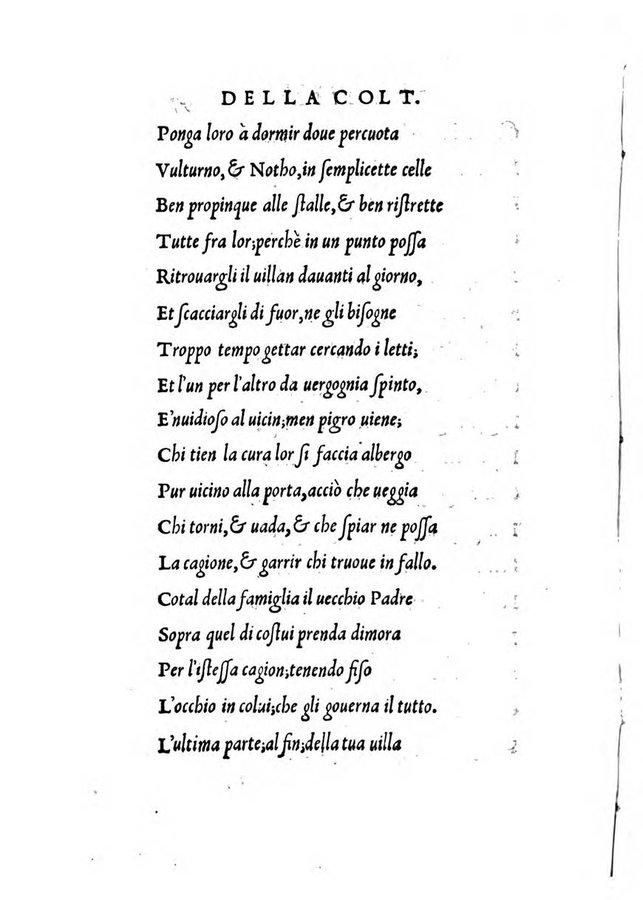 DELLA COLT.
Ponga loro à dormir doue percuota
Vulturno, & Notho, in ſemplicette celle
Ben propinque alle ſtalle, & ben riſtrette
Tutte fra lor; perchè in un punto poſſa
Ritrouargli il uillan dauanti al giorno,
Et ſcacciargli di fuor, ne gli biſogne
Troppo tempo gettar cercando i letti;
Et l'un per l'altro da uergognia ſpinto,
E'nuidioſo al uicin; men pigro uiene;
Chi tien la cura lor ſi faccia albergo
Pur uicino alla porta, acciò che ueggia
Chi torni, & uada, & che ſpiar ne poſſa
La cagione, & garrir chi truoue in fallo.
Cotal della famiglia il uecchio Padre
Sopra quel di coſtui prenda dimora
Per l'iſteſſa cagion; tenendo fiſo
L'occhio in colui; che gli gouerna il tutto.
L'ultima parte; al fin; della tua uilla